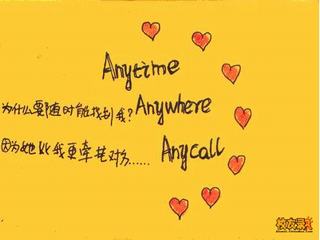 Anytime
为什么要随时能找到我？Anywhere
因为她比我更牵挂对方…… Anycall
校友录